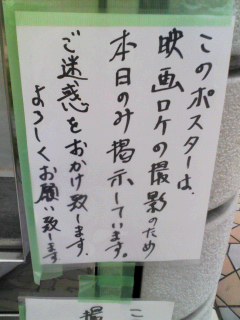 このポスターは、
映画ロケの撮影のため
本日のみ掲示しています。
ご迷惑をおかけ致します。
よろしくお願い致します
こ
撮